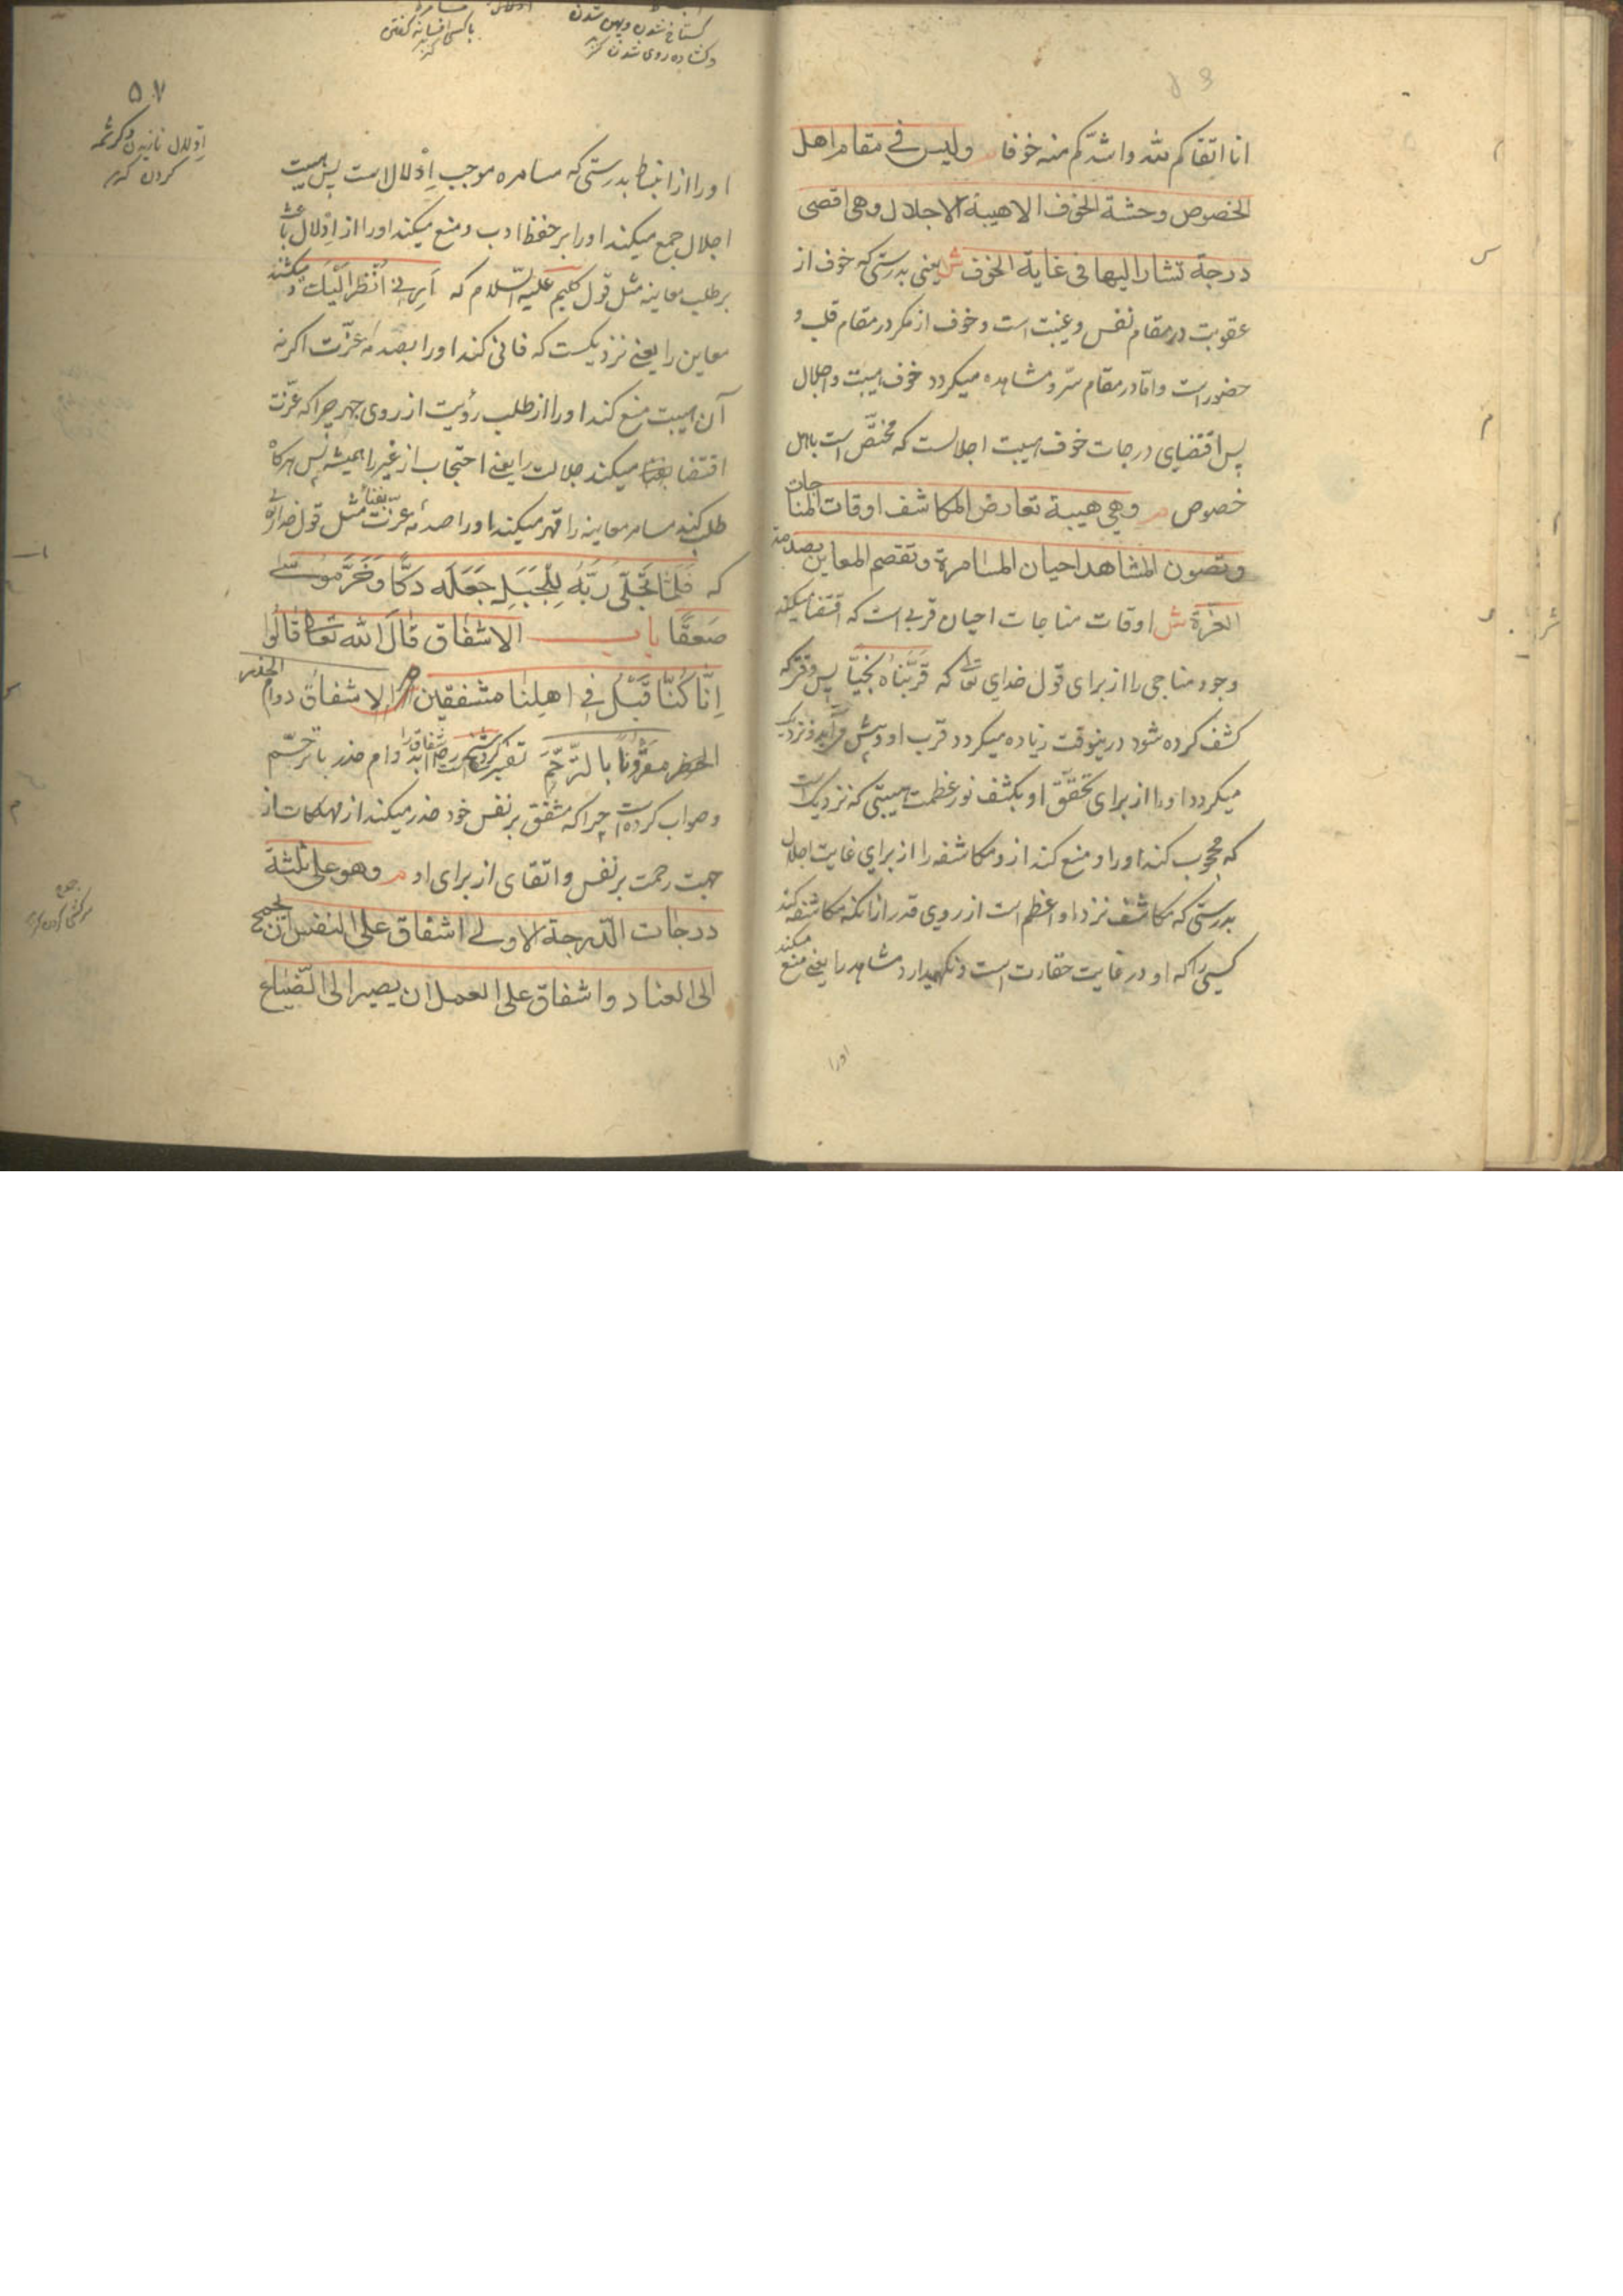 انا اتقاکم لله واشدکم منه خوفا م ولیس فی مقام اهل
الخصوص وحشة الخوف الا هیبة الاجلال وهی اقصی
درجة تشار الیها فی غایة الخوف ش یعنی بدرستی که خوف از
عقوبت در مقام نفس و غیبت است و خوف از مکر در مقام قلب و
حضور است و اما در مقام سر و مشاهده میکردد خوف هیبت و اجلال
پس اقتضیای درجات خوف هیبت اجلالست که مختص است باهل
خصوص م وهی هیبة تعارض المکاشف اوقات المناجات
وتصون المشاهد احیان المسامرة وتقصم المعاین بصدمة
العزة ش اوقات مناجات احیان قربی است که اقتضا میکند
وجود مناجی را از برای قول خدای تعا که قربناه نجیا پس وقتی که
کشف کرده شود درینوقت زیاده میکردد قرب او و پیش می آید و نزدیک
میکردد او را از برای تحقق او بکشف نور عظمت هیبتی که نزدیک است
که محجوب کند او را و منع کند ازو مکاشفه را از برای غایت اجلال
بدرستی که مکاشف نزد او اعظم است از روی قدر از انکه مکاشفه کند
کسی را که او در غایت حقارت است و نکهمیدارد مشاهد را یعنی منع میکند
اورا
۵۷
کستاخ شدن و پهن شدن
و کشاده روی شدن
با کسی افسانه کفتن
اِدلال نازیدن و کرشمه
کردن
او را از انبساط بدرستی که مسامره موجب اِدْلال است پس هیبت
اجلال جمع میکند او را بر حفظ ادب و منع میکند او را از اِدلال باعث
بر طلب معاینه مثل قول کلیم علیه السلام که اَرِنی اَنْظُر اِلَیْکَ و میکشند
معاین را یعنی نزدیکست که فانی کند او را بصدمه عزت اکر نه
آن هیبت منع کند او را از طلب رؤیت از روی جهر چرا که عزت
اقتضا میکند جلالت را یعنی احتجاب از غیر را همیشه پس هرکاه
طلب کند مسامر معاینه را قهر میکند او را صدمه عزت بفنا مثل قول خدای تعا
که فَلَمّا تَجَلّی رَبُّهُ لِلْجَبَلِ جَعَلَهُ دَکًّا وَخَرَّ مُوسی
صَعِقًا باب الاشفاق قال الله تعالی قالوا
اِنّا کُنّا قَبْلُ فی اهلنا مشفقین م الاشفاق دوام الحذر
مقرونا بالترحم تفسیر کرده است اشفاق را دوام حذر با ترحم
و صواب کرده است چرا که مشفق بر نفس خود حذر میکند از مهلکات از
جهت رحمت بر نفس و اتقای از برای او م وهو علی ثلثة
درجات الدرجة الاولی اشفاق علی النفس ان تجمح
الی العناد واشفاق علی العمل ان یصیر الی الضیاع